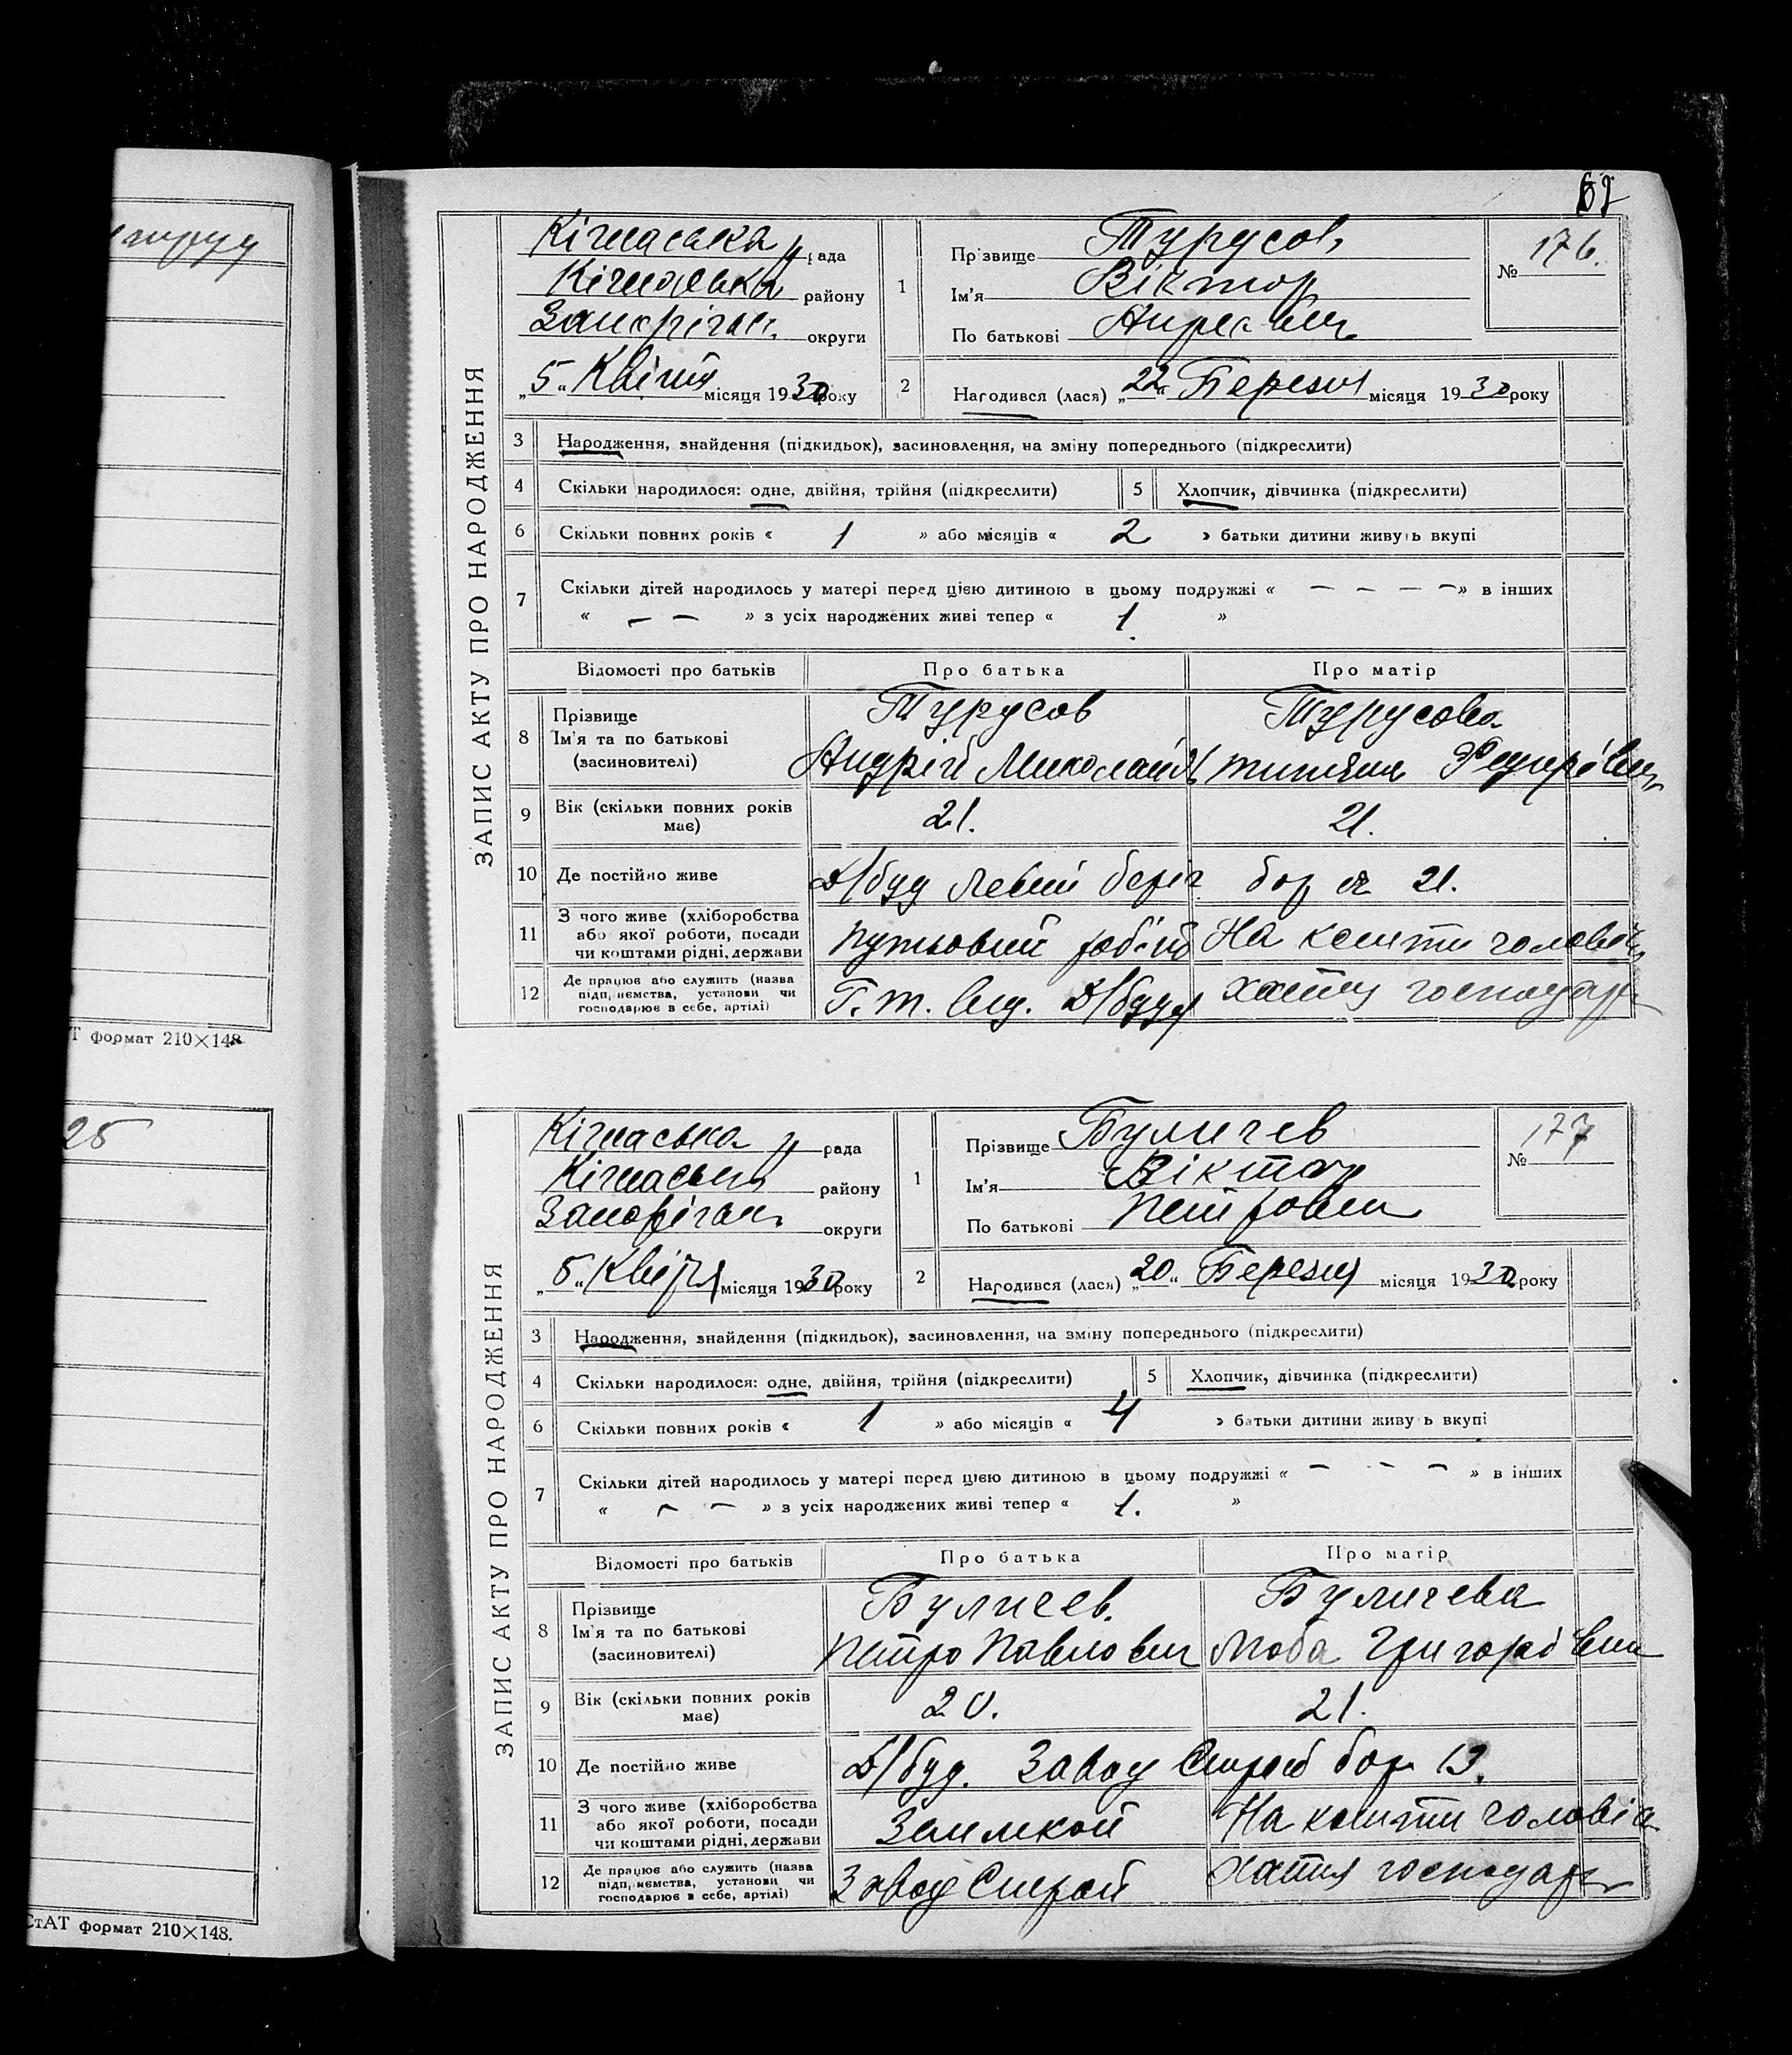 формат 210×148
25
формат 210×148.
ЗАПИС АКТУ ПРО НАРОДЖЕННЯ
Кічкаська р. рада
Кічкаська району
округи
„5“ Квітня місяця 1930 року
1
Прізвище Турусов
Ім'я Віктор
По батькові
№ 176.
2 Народився (лася) „22“ Березня місяця 1930 року
3 Народження, знайдення (підкидьок), засиновлення, на зміну попереднього (підкреслити)
4 Скільки народилося: одне, двійня, трійня (підкреслити) 5 Хлопчик, дівчинка (підкреслити)
6 Скільки повних років « 1 » або місяців « 2 » батьки дитини живуть вкупі
7 Скільки дітей народилось у матері перед цією дитиною в цьому подружжі « — — — — » в інших
« — — » з усіх народжених живі тепер « 1. »
Відомості про батьків Про батька Про матір
8 Прізвище Турусов Турусова
Ім'я та по батькові Андрій
(засиновителі)
9 Вік (скільки повних років 21. 21.
має)
10 Де постійно живе Д/буд Левий беріг бар 21.
11 З чого живе (хліборобства
або якої роботи, посади На кошти
чи коштами рідні, держави
12 Де працює або служить (назва
підприємства, установи чи Д/буду
господарює в себе, артілі)
ЗАПИС АКТУ ПРО НАРОДЖЕННЯ
Кічкаська р. рада
району
округи
„5“ Квітня місяця 1930 року
1
Прізвище Буличев
Ім'я Віктор
По батькові Петрович
№ 177
2 Народився (лася) „20“ Березня місяця 1930 року
3 Народження, знайдення (підкидьок), засиновлення, на зміну попереднього (підкреслити)
4 Скільки народилося: одне, двійня, трійня (підкреслити) 5 Хлопчик, дівчинка (підкреслити)
6 Скільки повних років « 1 » або місяців « 4 » батьки дитини живуть вкупі
7 Скільки дітей народилось у матері перед цією дитиною в цьому подружжі « — — — » в інших
« — — » з усіх народжених живі тепер « 1. »
Відомості про батьків Про батька Про матір
8 Прізвище Буличев. Буличева
Ім'я та по батькові Петро Павлович
(засиновителі)
9 Вік (скільки повних років 20. 21.
має)
10 Де постійно живе Д/буд. Завод бар
11 З чого живе (хліборобства
або якої роботи, посади На кошти
чи коштами рідні, держави
12 Де працює або служить (назва
підприємства, установи чи Завод
господарює в себе, артілі)